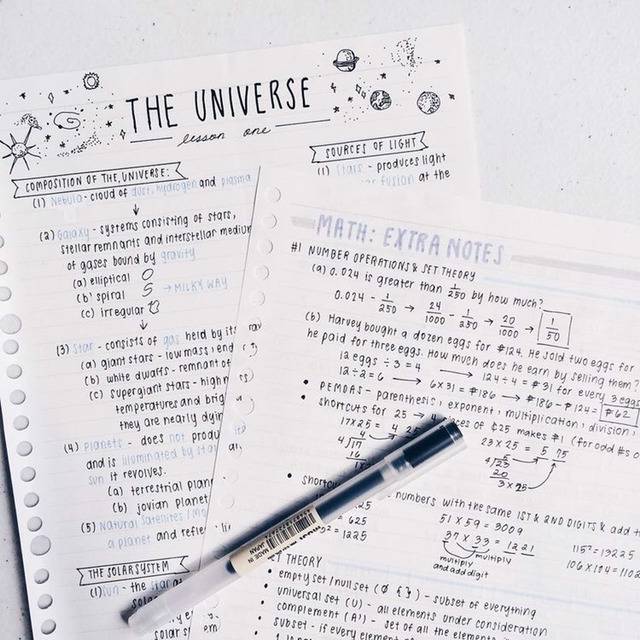 THE UNIVERSE
lesson one
COMPOSITION OF THE UNIVERSE:
(1) Nebula - cloud of dust, hydrogen and plasma
(2) Galaxy - systems consisting of stars,
stellar remnants and interstellar medium
of gases bound by gravity
(a) elliptical
(b) spiral → MILKY WAY
(c) irregular
(3) Star - consists of gas held by its
(a) giant stars - low mass, end
(b) white dwarfs - remnant of
(c) supergiant stars - high
temperatures and brig
they are nearly dyin
(4) Planets - does not produ
and is illuminated by star
sun it revolves.
(a) terrestrial plan
(b) jovian planet
(5) Natural Satellites
a planet and refle
THE SOLAR SYSTEM
(1) Sun - the star
SOURCES OF LIGHT
(1) Stars - produces light
fusion at the
MATH: EXTRA NOTES
#1 NUMBER OPERATIONS & SET THEORY
(a) 0.024 is greater than 1/250 by how much?
0.024 - 1/250 → 24/1000 - 1/250 → 20/1000 → 1/50
(b) Harvey bought a dozen eggs for ₱124. He sold two eggs for
he paid for three eggs. How much does he earn by selling them?
12 eggs ÷ 3 = 4 → 124 ÷ 4 = ₱31 for every 3 eggs
12 ÷ 2 = 6 → 6 x 31 = ₱186 → ₱186 - ₱124 = ₱62
• PEMDAS - parenthesis, exponent, multiplication, division,
• shortcuts for 25 → 4 pieces of $25 makes $1 (for odd #s o
17 x 25 = 4 25
4√17
16
23 x 25 = 5 75
4√23
20
3 x 25
numbers with the same 1ST & 2ND DIGITS & add t
625
51 x 59 = 3009
1225
37 x 33 = 1221
115² = 13225
multiply
multiply
and add digit
MADE IN
JAPAN
SET THEORY
• empty set / null set (Ø { }) - subset of everything
universal set (U) - all elements under consideration
complement (A') - set of all the elements
subset - if every element of